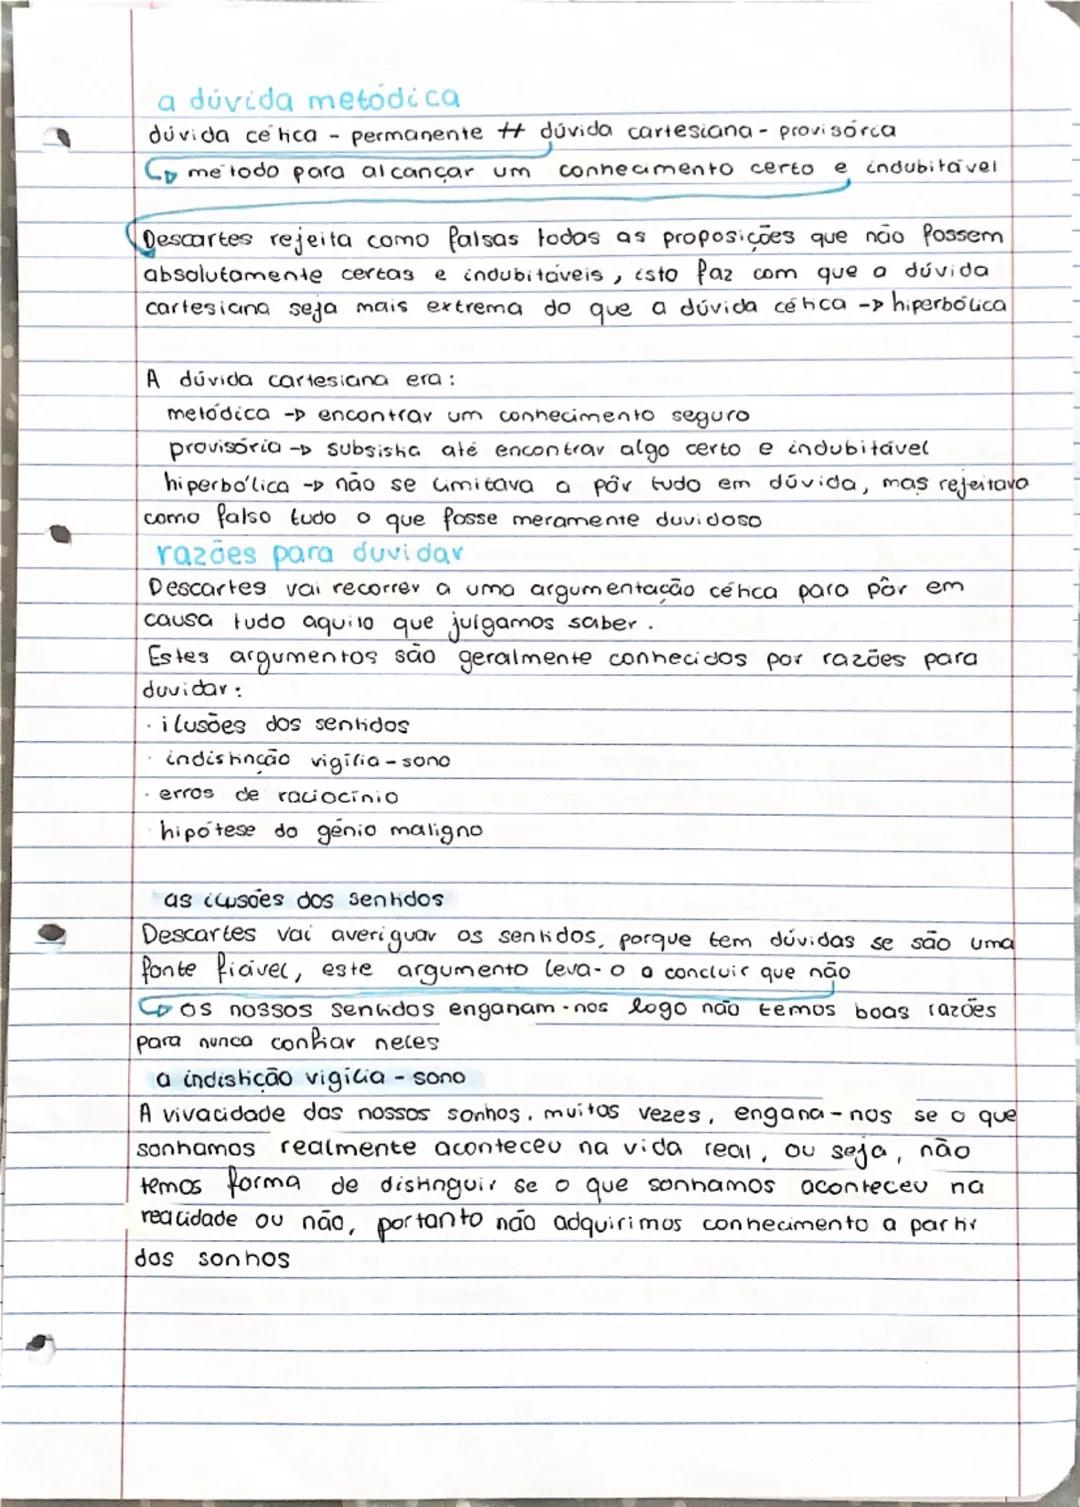 a dúvida metódica
dúvida cética - permanente ⧺ dúvida cartesiana - provisória
↳ método para alcançar um conhecimento certo e indubitável
Descartes rejeita como falsas todas as proposições que não fossem
absolutamente certas e indubitáveis, isto faz com que a dúvida
cartesiana seja mais extrema do que a dúvida cética -> hiperbólica
A dúvida cartesiana era:
metódica -> encontrar um conhecimento seguro
provisória -> subsistia até encontrar algo certo e indubitável
hiperbólica -> não se limitava a pôr tudo em dúvida, mas rejeitava
como falso tudo o que fosse meramente duvidoso
razões para duvidar
Descartes vai recorrer a uma argumentação cética para pôr em
causa tudo aquilo que julgamos saber.
Estes argumentos são geralmente conhecidos por razões para
duvidar:
· ilusões dos sentidos
· indistinção vigília - sono
· erros de raciocínio
· hipótese do génio maligno
as ilusões dos sentidos
Descartes vai averiguar os sentidos, porque tem dúvidas se são uma
fonte fiável, este argumento leva-o a concluir que não
↳ os nossos sentidos enganam-nos logo não temos boas razões
para nunca confiar neles
a indistição vigília - sono
A vivacidade dos nossos sonhos, muitas vezes, engana-nos se o que
sonhamos realmente aconteceu na vida real, ou seja, não
temos forma de distinguir se o que sonhamos aconteceu na
realidade ou não, portanto não adquirimos conhecimento a partir
dos sonhos